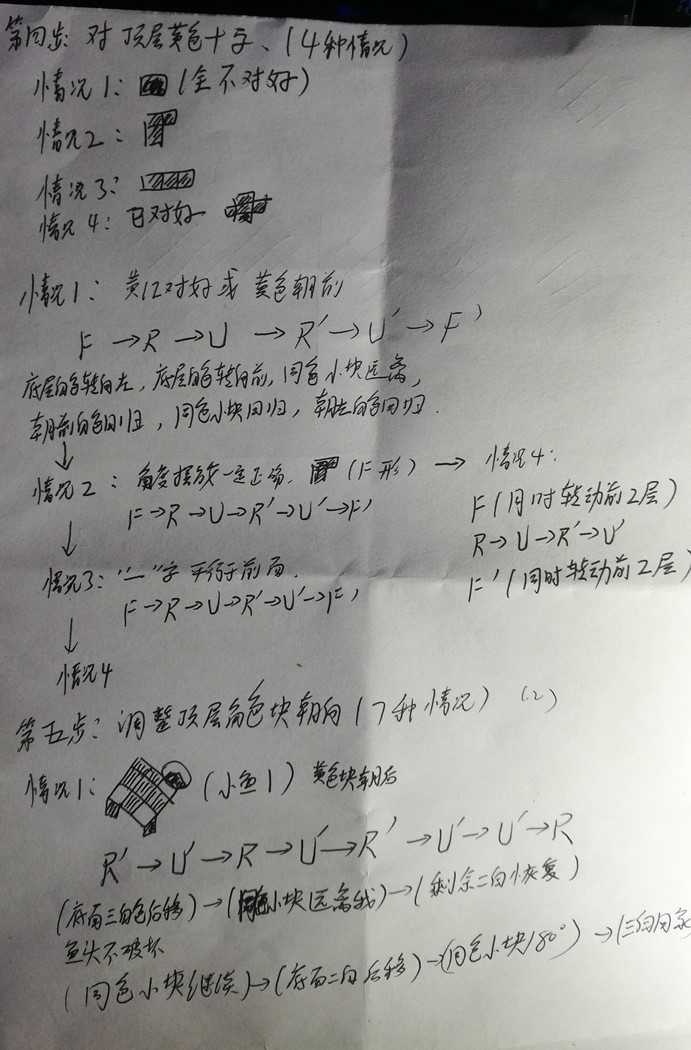 第四步: 对顶层黄色十字、(4种情况)
情况1: (全不对好)
情况2:
情况3:
情况4: 已对好
情况1: 黄红对好或 黄色朝前
F→R→U→R'→U'→F'
底层白色转向左, 底层白色转向前, 同色小块远离,
朝前白色回归, 同色小块回归, 朝左白色回归.
↓
情况2: 角度摆放一定正确. (F形) → 情况4:
F→R→U→R'→U'→F'
F(同时转动前2层)
R→U→R'→U'
F'(同时转动前2层)
↓
情况3: "一"字平行于前面.
F→R→U→R'→U'→F'
↓
情况4
第五步: 调整顶层角色块朝向(7种情况)
情况1: (小鱼1) 黄色块朝后
R'→U'→R→U'→R'→U'→U'→R
(底面三白色后移)→(同色小块远离我)→(剩余二白恢复)
鱼头不破坏
(同色小块继续)→(底面二白后移)→(同色小块180°)→(三白回家